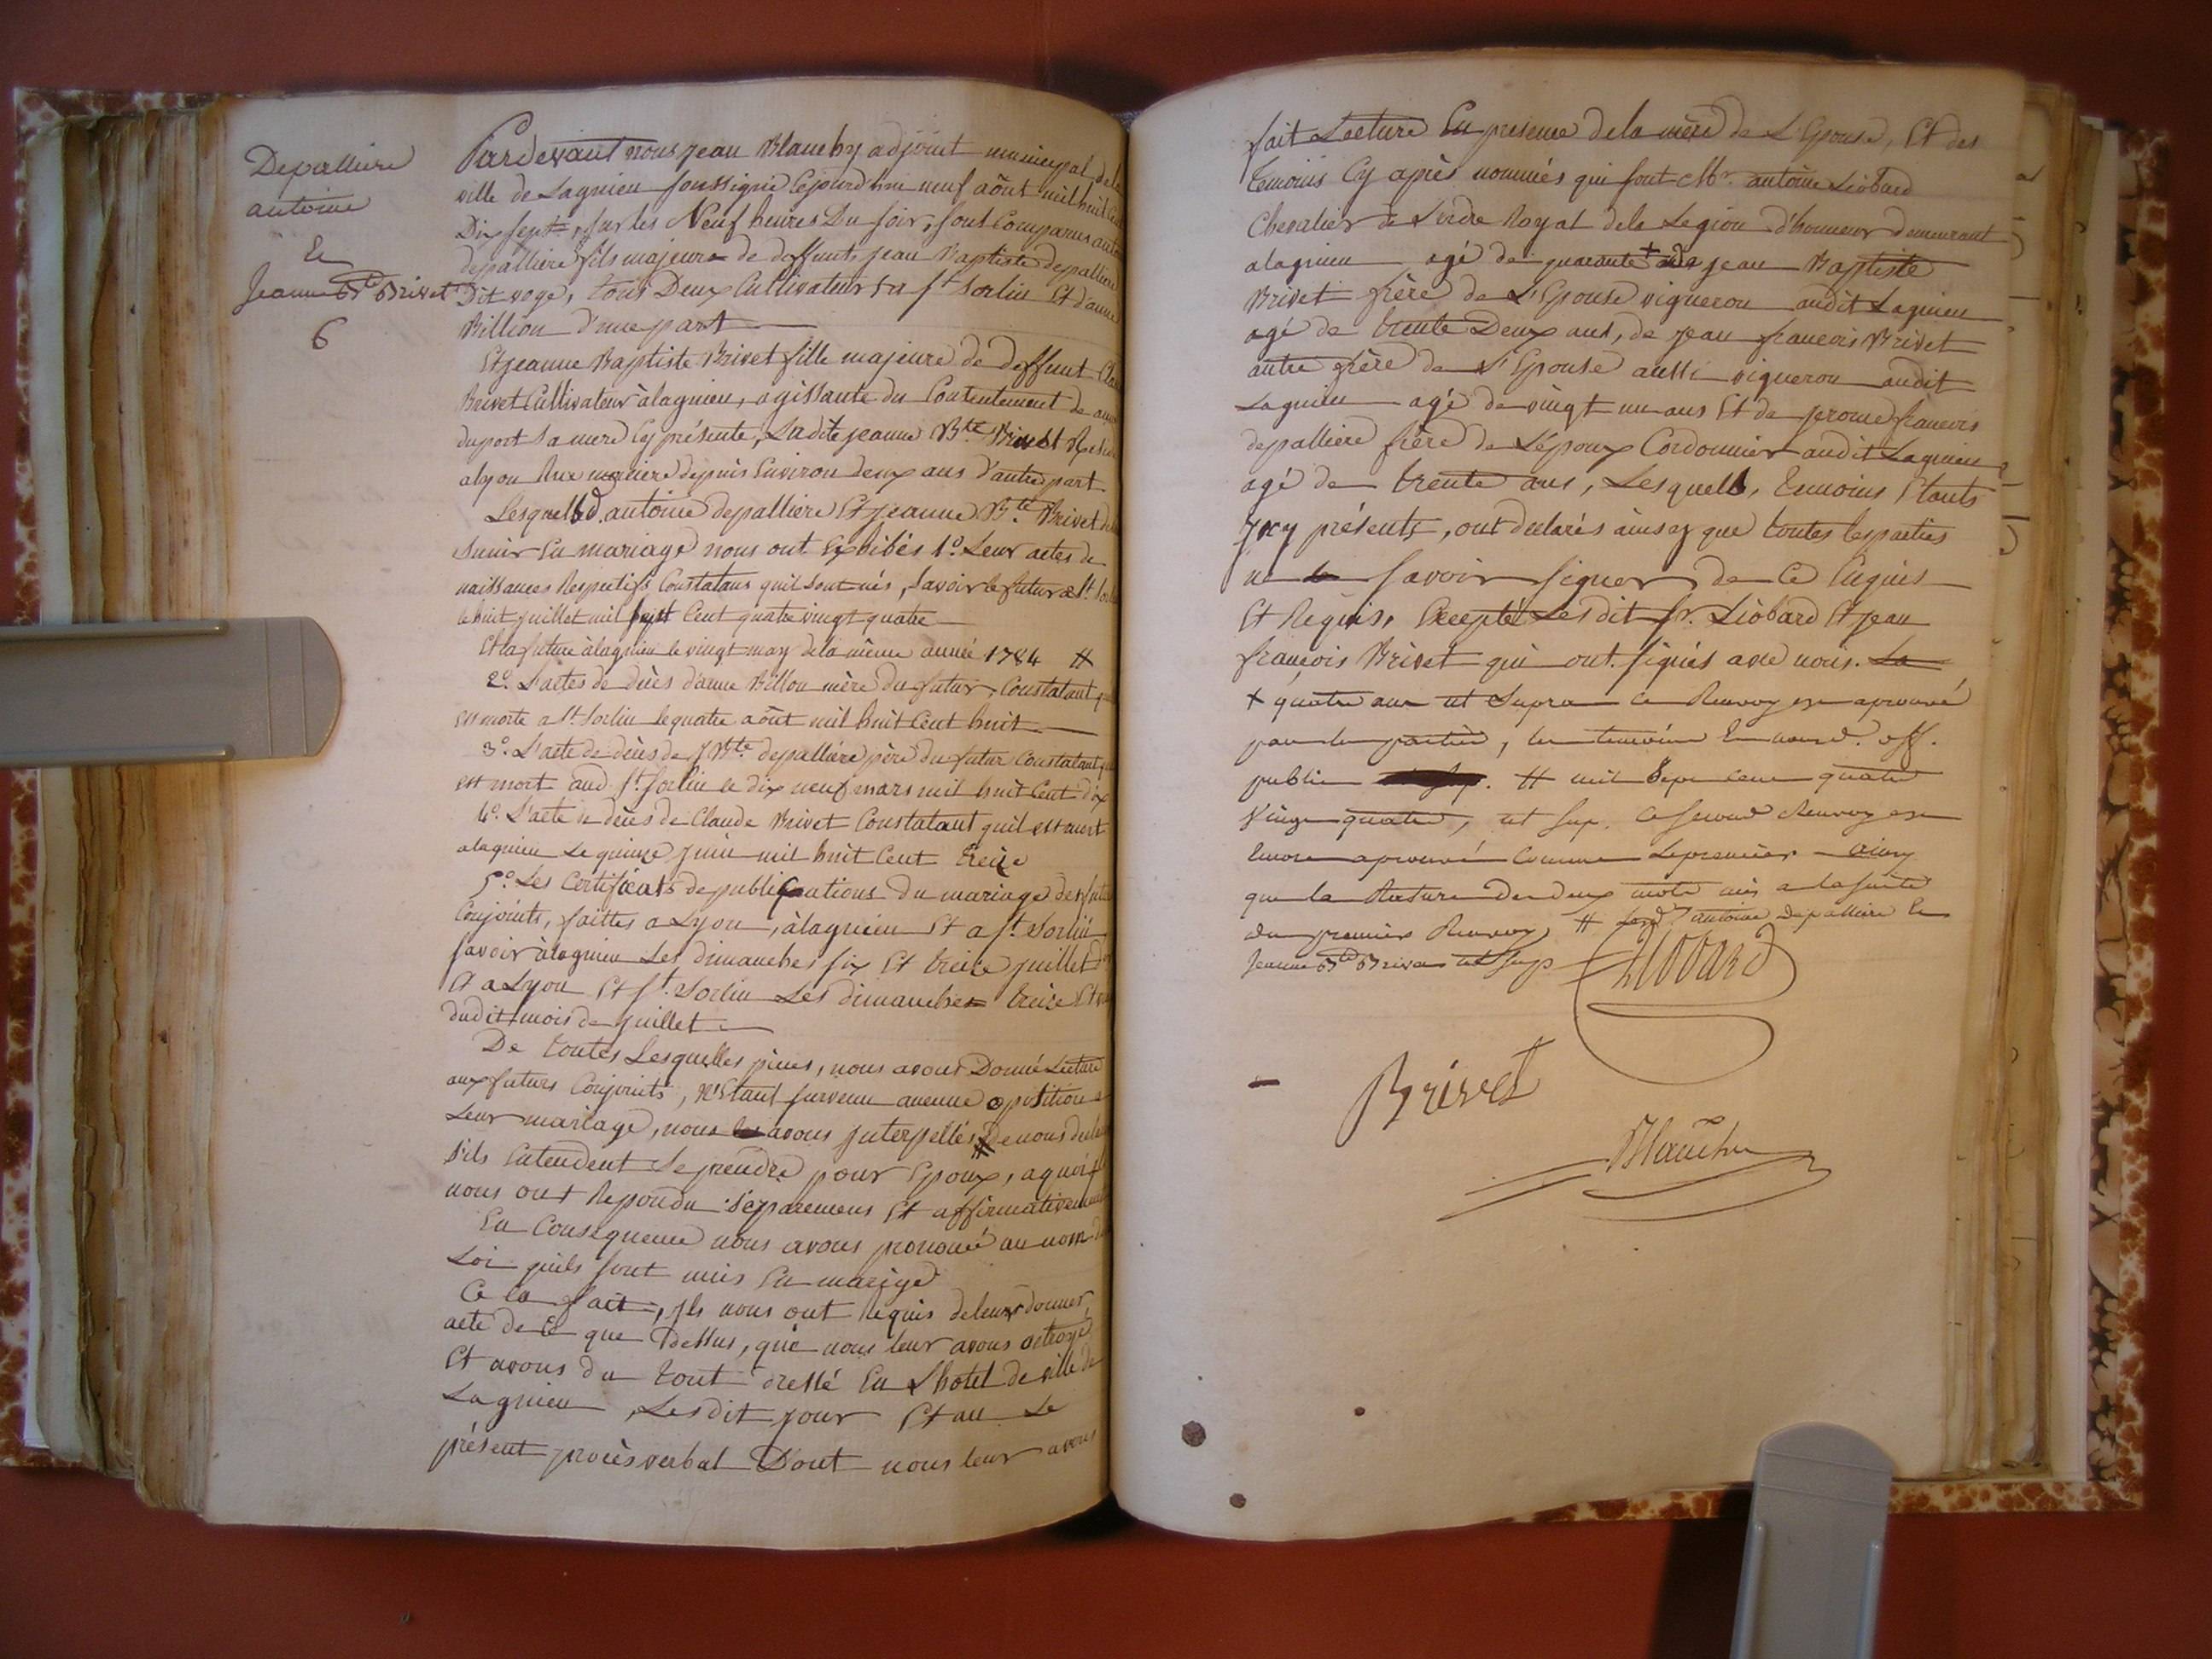 Depalliere
antoine
Et
Jeanne Bte Brivet
6
Pardevant nous jean Blanchy adjoint municipal de la
ville de Lagnieu soussigné cejourd'hui neuf aôut mil huit Cent
Dix sept, sur les Neuf heures Du soir, sont Comparus antoine
depalliere fils majeur de deffunts jean Baptiste depalliere
Dit voge, tous Deux Cultivateurs a St sorlin Et d'anne
Billion d'une part
Et jeanne Baptiste Brivet fille majeure de deffunt Claude
Brivet Cultivateur à lagnieu, agissante du Contentement de anne
duport sa mere Cy présente, Ladite jeanne Bte Brivet
alyon Rue merciere depuis Environ deux ans d'autre part
Lesquels d. antoine depalliere Et jeanne Bte Brivet
sunir En mariage nous ont Exhibés 1º Leur actes de
naissances Respectifs Constatans quil sont nés, savoir le futur a St. Sorlin
le huit juillet mil sept Cent quatre vingt quatre
Et la future à lagnieu le vingt may de la même année 1784 #
2º L'actes de décès d'anne Billion mère du futur, Constatant qu
est morte a St. Sorlin le quatre aôut mil huit Cent huit
3º L'acte de décès de J Bte depalliere père du futur Constatant qu
est mort aud St. sorlin le dix neuf mars mil huit Cent dix
4º L'acte de décès de Claude Brivet Constatant quil est mort
alagnieu Le quinze juin mil huit Cent treize
5º Les Certificats de publications du mariage des futurs
Conjoints, faittes a Lyon, à lagnieu Et a St. Sorlin
savoir à lagnieu Les dimanches six Et treize juillet
Et a Lyon Et St. Sorlin Les dimanches treize Et
dudit mois de juillet
De toutes Lesquelles pieces, nous avons Donné Lecture
aux futurs Conjoints, N'Etant survenu aucune opisition a
Leur mariage, nous avons jnterpellés # de nous declarer
s'ils Entendent Se prendre pour Epoux, a quoi
nous ont Repondu séparemens Et affirmativement
En Consequence nous avons prononcé au nom de
Loi quils sont unis En mariage
Ce la fait, jls nous ont Requis de leur donner
acte de Ce que Dessus, que nous leur avons octroyé
Et avons du tout dressé En L'hotel de ville de
Lagnieu, Lesdit jour Et an Le
présent procès verbal D'ont nous leur avons
fait Lecture En presence de la mère de L'Epouse, Et des
temoins Cy après nommés qui sont Mr. antoine Liobard
Chevalier de L'ordre Royal dela Legion d'honneur demeurant
alagnieu agé de quarante + de jean Baptiste
Brivet frère de L'Epouse vigneron audit Lagnieu
agé de trente Deux ans, de jean françois Brivet
autre frère de L'Epouse aussi vigneron audit
Lagnieu agé de vingt un ans Et de jerome françois
depalliere frère de L'époux Cordonnier audit Lagnieu
agé de trente ans, Lesquels, temoins Etants
jcy présents, ont declarés ainsy que toutes les parties
ne savoir signer de Ce Enquis
Et Réquis. Excepté Lesdit sr. Liobard Et jean
françois Brivet qui ont signés avec nous. La
+ quatre ans ut supra Ce Renvoy est aprouvé
par les parties, les temoins Et nous d. off.
public. # mil sept cent quatre
vingt quatre, ut sup. Ce second Renvoy est
Encore aprouvé Comme Le premier ainsy
que la Rature des deux mots mis a la suite
du premier Renvoy # Lesd. antoine depalliere Et
Jeanne Bte Brivet ut sup
Liobard
Brivet
Blanchy